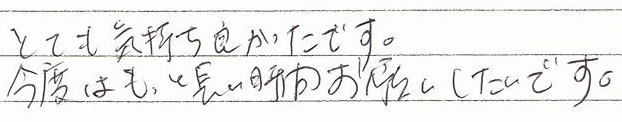 とても気持ち良かったです。
今度はもっと長い時間お願いしたいです。